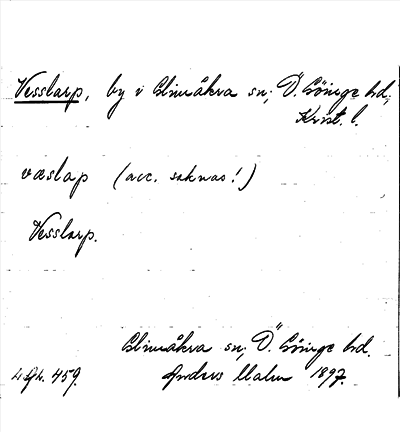 Vesslarp, by i Glimåkra sn, Ö. Göinge hd,
Krist. l.
væslap (acc. saknas!)
Vesslarp.
Glimåkra sn, Ö. Göinge hd.
459. Anders Malm 1897.